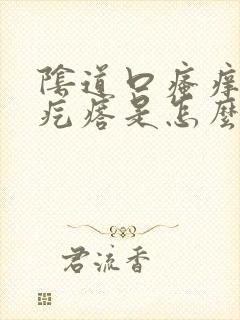 陰道口瘙癢
疙瘩是怎麼
君流香